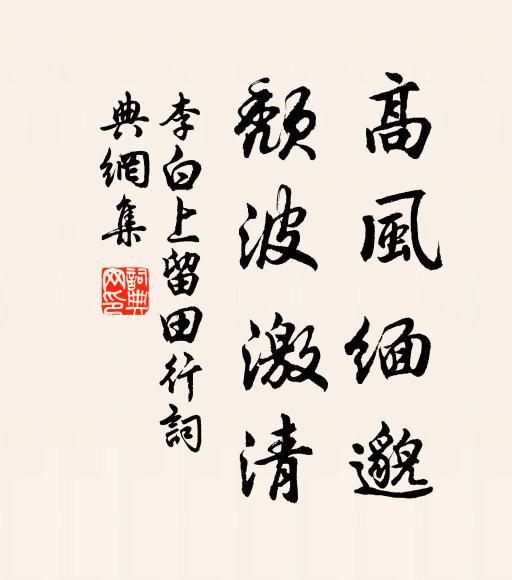 高風緬邈
頹波激清
李白上留田行詞
典網集
詞典網印